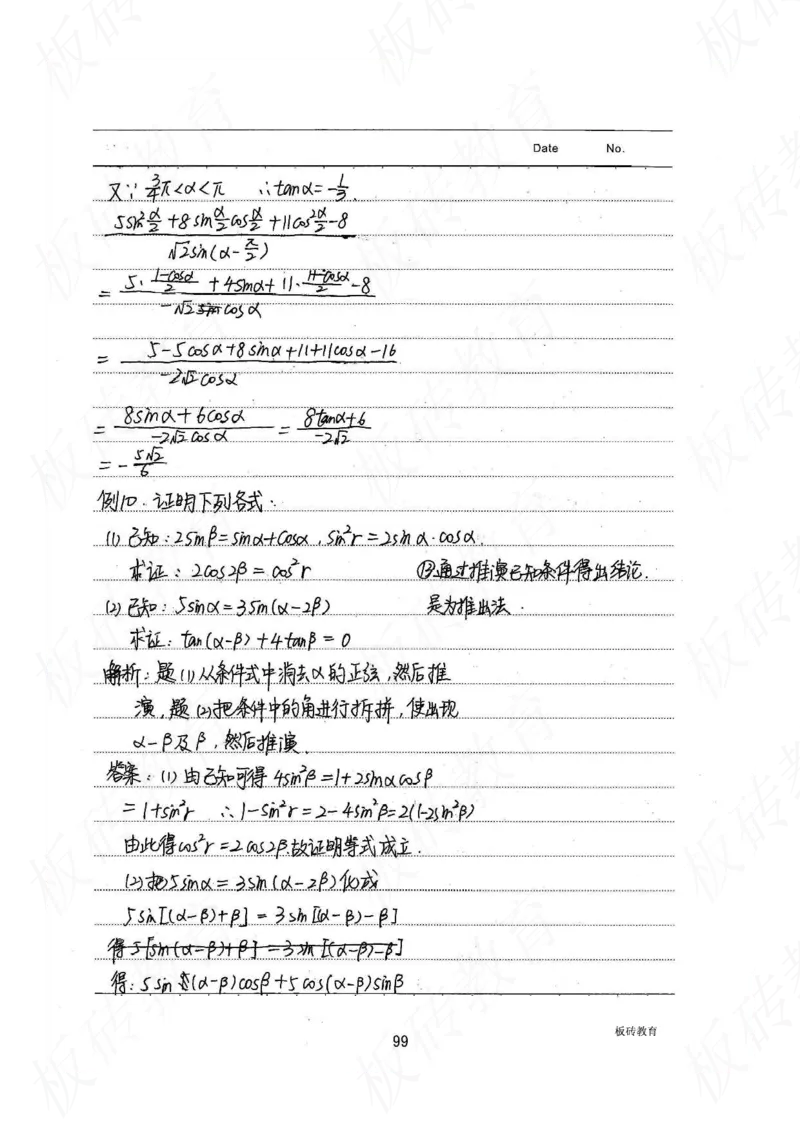 Date No.
又∵ 3/4π<α<π ∴tanα=-1/3.
(5sin²α/2+8sinα/2cosα/2+11cos²α/2-8)/(√2sin(α-π/2))
=(5·(1-cosα)/2+4sinα+11·(1+cosα)/2-8)/(-√2cosα)
=(5-5cosα+8sinα+11+11cosα-16)/(-2√2cosα)
=(8sinα+6cosα)/(-2√2cosα)=(8tanα+6)/(-2√2)
=-5√2/6
例10.证明下列各式.
(1)已知:2sinβ=sinα+cosα,sin²r=2sinα·cosα.
求证:2cos2β=cos²r ⑬通过推演已知条件得出结论.
(2)已知:5sinα=3sin(α-2β) 是为推出法.
求证:tan(α-β)+4tanβ=0
解析:题(1)从条件式中消去α的正弦,然后推
演,题(2)把条件中的角进行拆拼,使出现
α-β及β,然后推演.
答案:(1)由已知可得4sin²β=1+2sinαcosβ
=1+sin²r ∴1-sin²r=2-4sin²β=2(1-2sin²β)
由此得cos²r=2cos2β.故证明等式成立.
(2)把5sinα=3sin(α-2β)化成
5sin[(α-β)+β]=3sin[(α-β)-β]
得5[sin(α-β)+β]=3sin[(α-β)-β]
得:5sin(α-β)cosβ+5cos(α-β)sinβ
板砖教育
99